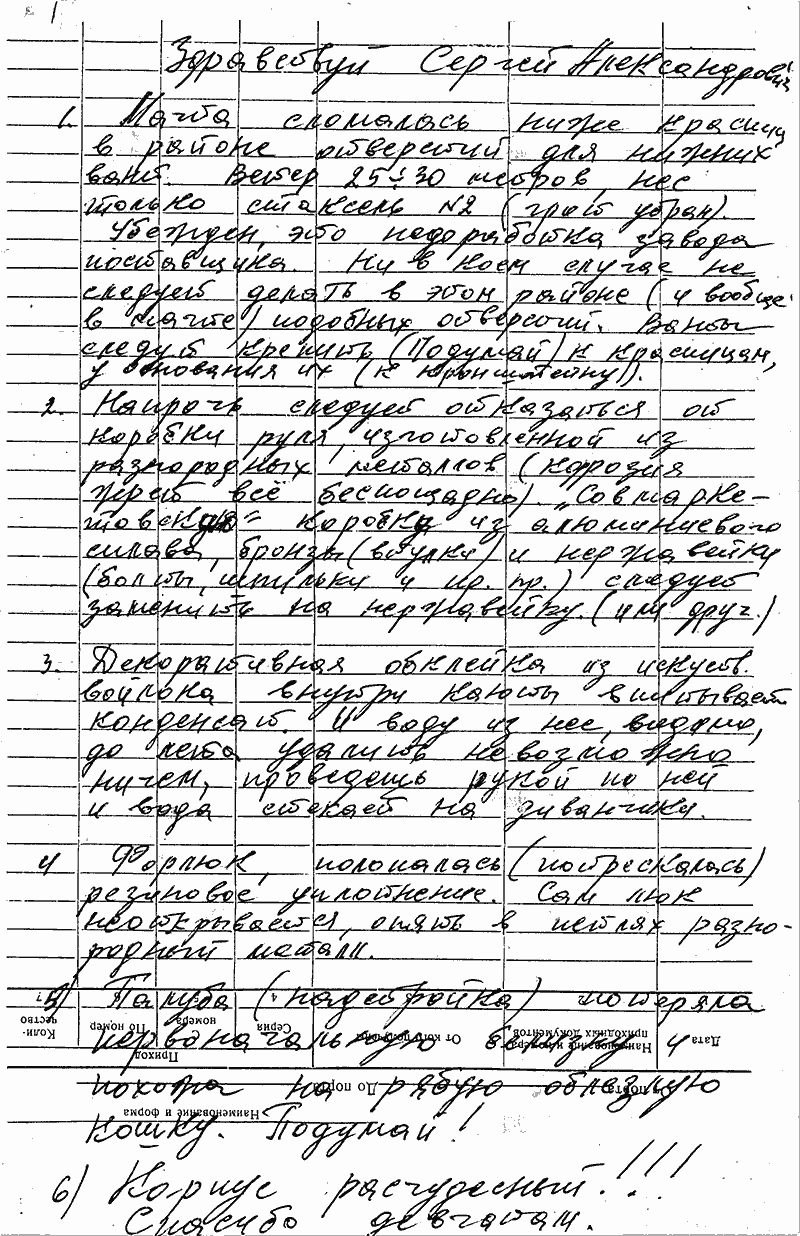 1
Здравствуй Сергей Александрович
1. Мачта сломалась ниже краспиц
в районе отверстий для нижних
вант. Ветер 25÷30 метров, нес
только стаксель №2 (грот убран).
Убежден, это недоработка завода
поставщика. Ни в коем случае не
следует делать в этом районе (и вообще
в мачте) подобных отверстий. Ванты
следует крепить (Подумай) к краспицам,
у основания их (к кронштейну).
2. Напрочь следует отказаться от
коробки руля, изготовленной из
разнородных металлов (коррозия
жрет всё беспощадно). „Совмарке-
товскую" коробку из алюминиевого
сплава, бронзы (втулки) и нержавейки
(болты, шпильки и пр. пр.) следует
заменить на нержавейку. (или друг.)
3. Декоративная обклейка из искуств.
войлока внутри каюты впитывает
конденсат. И воду из нее,
до лета удалить невозможно
ничем, проведешь рукой по ней
и вода стекает на диванчики.
4 Форлюк, поломалась (потрескалась)
резиновое уплотнение. Сам люк
неоткрывается, опять в петлях разно-
родный металл.
5) Палуба (надстройка) потеряла
Коли-
чество
По номер
номера
Серия
От кого получено
Наименование и номера
приходных документов
Дата
первоначальную и
Приход
похожа на рябую облезлую
До порта
порта
Наименование и форма
кошку. Подумай!
6) Корпус расчудесный!!!
Спасибо девчатам.